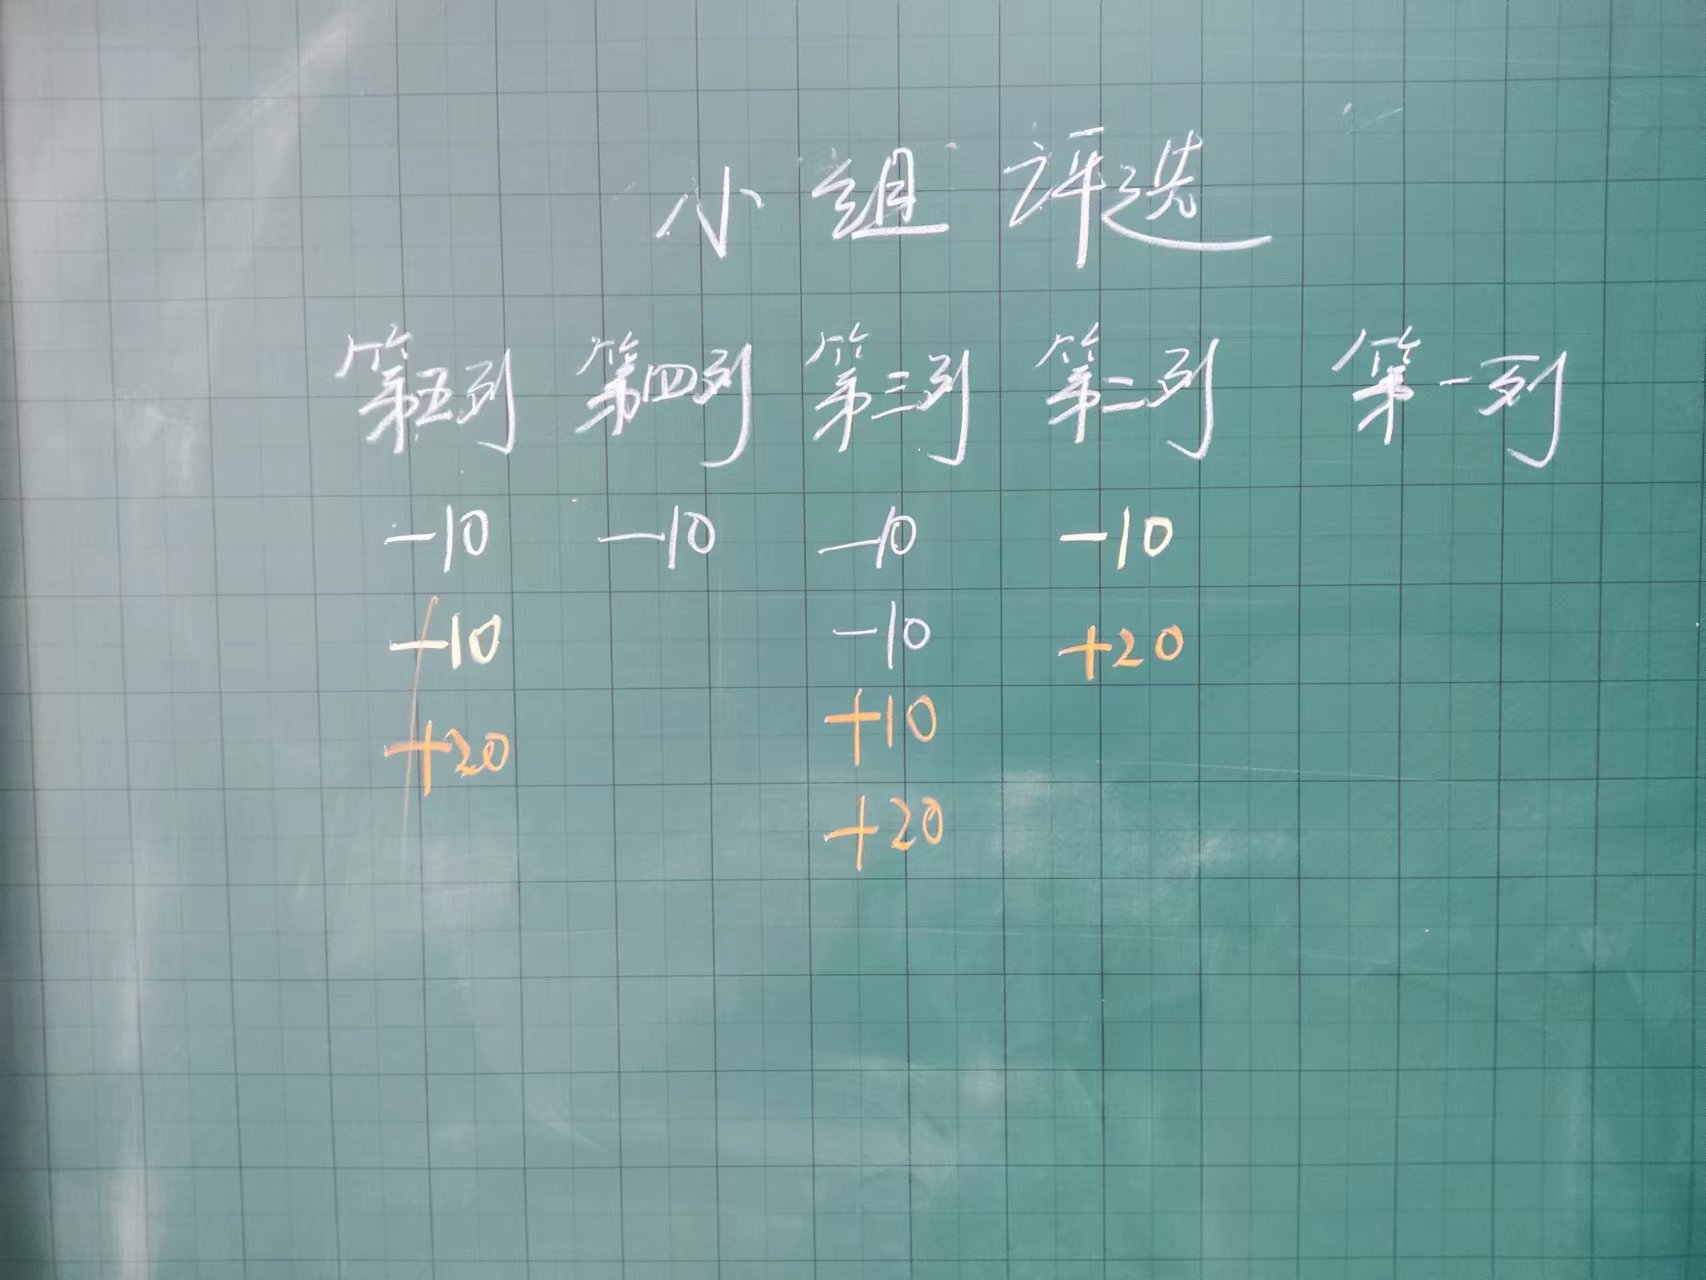 小组评选
第五列 第四列 第三列 第二列 第一列
-10 -10 -10 -10
-10 -10 +20
+20 +10
+20